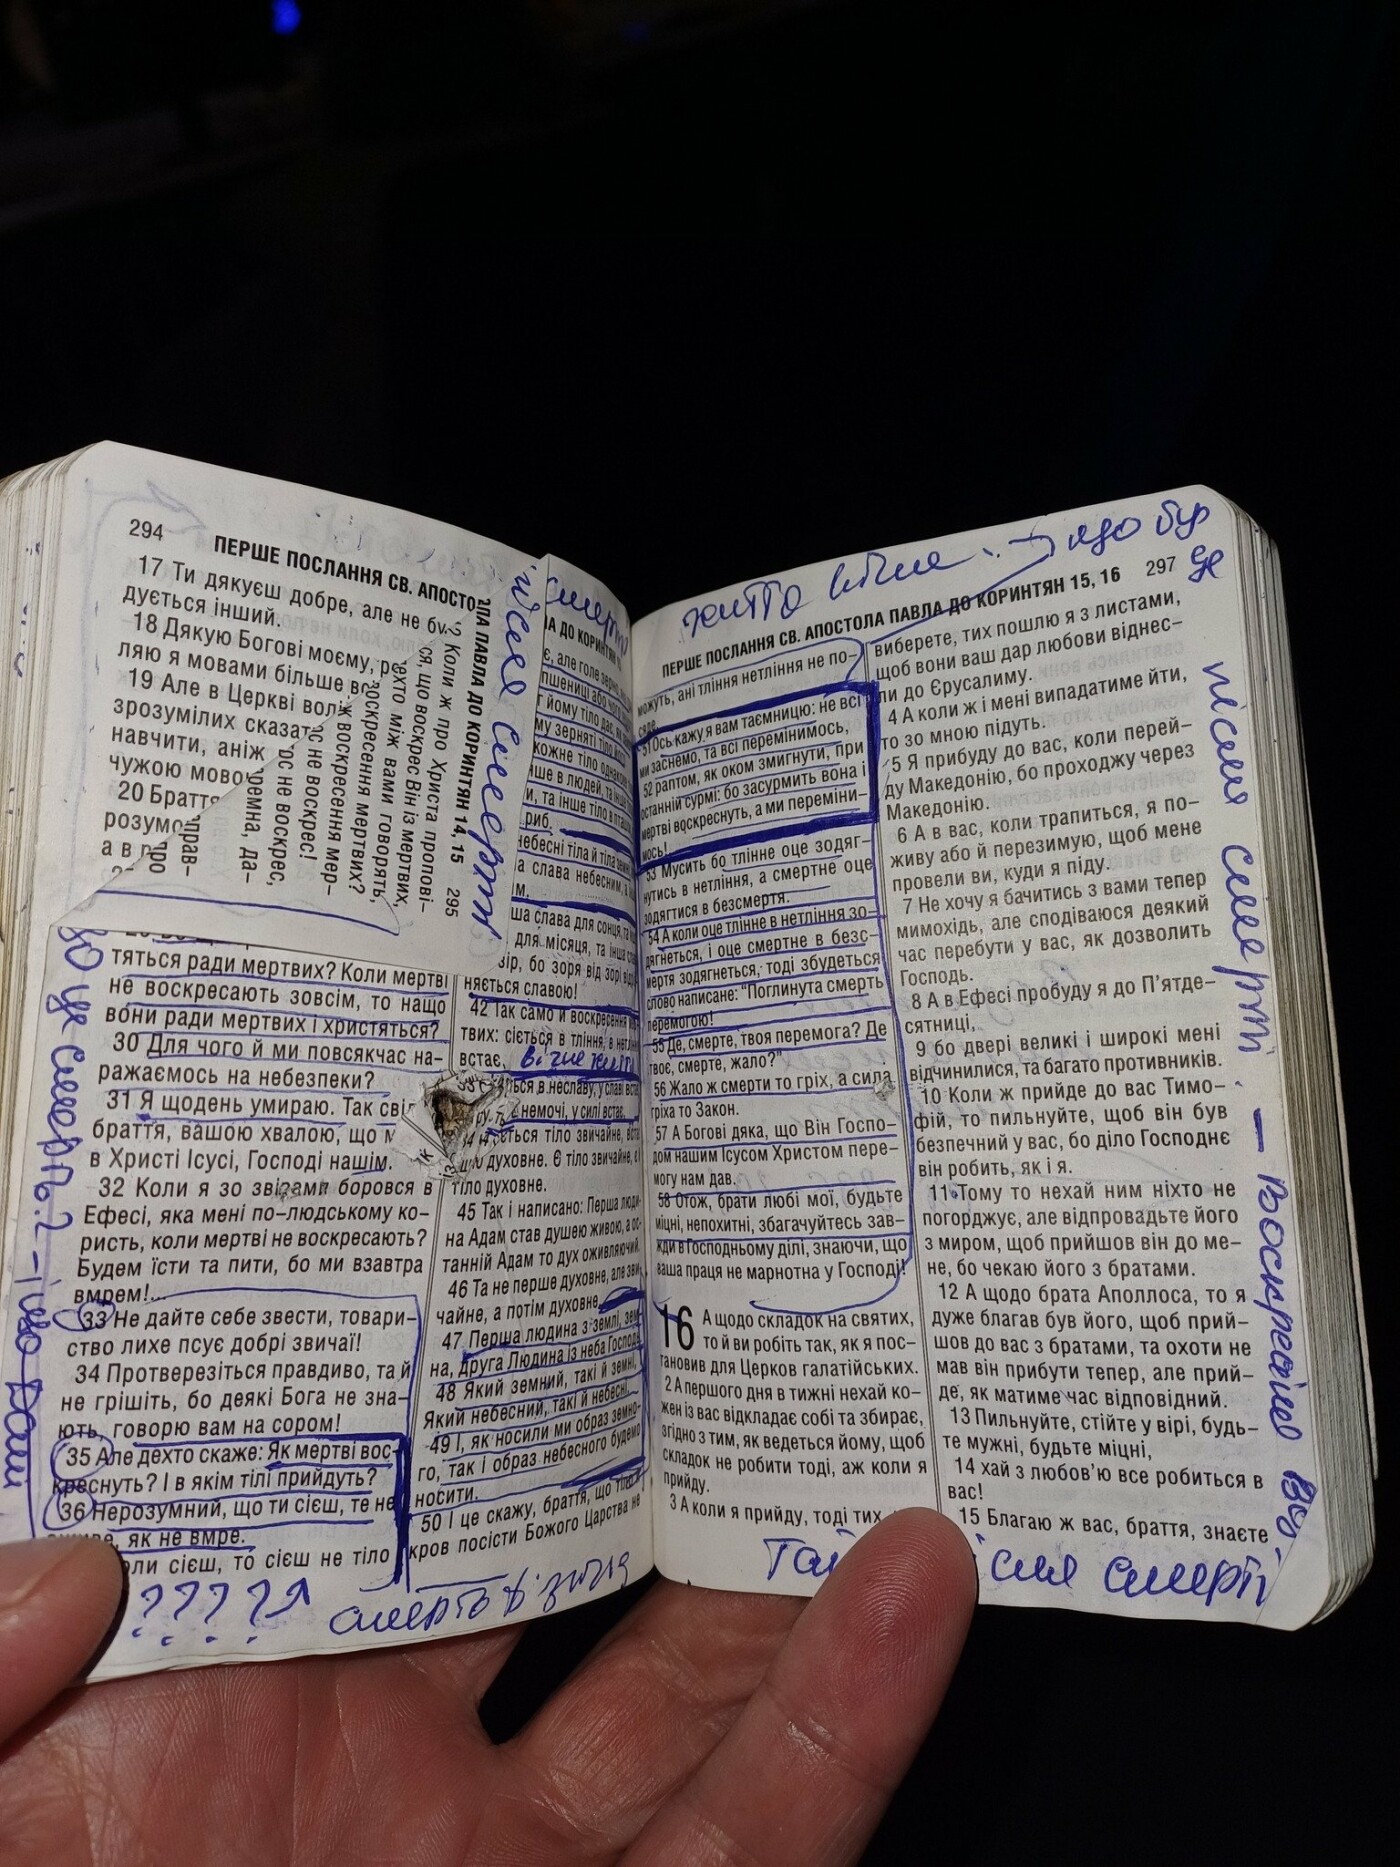 294
ПЕРШЕ ПОСЛАННЯ СВ. АПОСТО
17 Ти дякуєш добре, але не бу
дується інший.
18 Дякую Богові моєму,
ляю я мовами більше
19 Але в Церкві волі
зрозумілих сказат
навчити, аніж
чужою мово
20 Браття
розумо
ПЛА ПАВЛА ДО КОРИНТЯН 14, 15 295
Коли ж про Христа пропові-
ся, що воскрес Він із мертвих,
дехто між вами говорять,
воскресення мертвих?
ж воскресення мер-
не воскрес!
ос не воскрес,
ремна, да-
прав-
після смерти
тяться ради мертвих? Коли мертві
не воскресають зовсім, то нащо
вони ради мертвих і христяться?
30 Для чого й ми повсякчас на-
ражаємось на небезпеки?
31 Я щодень умираю. Так сві
браття, вашою хвалою, що м
в Христі Ісусі, Господі нашім.
32 Коли я зо звірами боровся в
Ефесі, яка мені по–людському ко-
ристь, коли мертві не воскресають?
Будем їсти та пити, бо ми взавтра
вмрем!..
33 Не дайте себе звести, товари-
ство лихе псує добрі звичаї!
34 Протверезіться правдиво, та й
не грішіть, бо деякі Бога не зна-
ють, говорю вам на сором!
35 Але дехто скаже: Як мертві вос-
креснуть? І в якім тілі прийдуть?
36 Нерозумний, що ти сієш, те не
, як не вмре.
оли сієш, то сієш не тіло
смерти
ЛА ДО КОРИНТЯН
є, але голе зерно,
пшениці або чого
йому тіло дає, як
му зерняті тіло
кожне тіло однакове
інше в людей, та інше
и, та інше тіло в пташ
риб.
небесні тіла й тіла земні
а слава небесним, а
м.
ша слава для сонця, та
для місяця, та інша сл
зір, бо зоря від зорі від
няється славою!
42 Так само й воскресення
твих: сіється в тління, в нетлін
встає, вічне життя
ться в неславу, у славі вст
немочі, у силі встає.
ється тіло звичайне, вст
духовне. Є тіло звичайне, є
тіло духовне.
45 Так і написано: Перша люди-
на Адам став душею живою, а ос-
танній Адам то дух оживляючий.
46 Та не перше духовне, але зви-
чайне, а потім духовне.
47 Перша людина з землі, зем-
на, друга Людина із неба Господь.
48 Який земний, такі й земні,
Який небесний, такі й небесні.
49 І, як носили ми образ земно-
го, так і образ небесного будемо
носити.
50 І це скажу, браття, що тіло й
кров посісти Божого Царства не
що це смерть?
? ? ? ? ?
життя вічне що бу
де
після смерти – воскресіню
ПЕРШЕ ПОСЛАННЯ СВ. АПОСТОЛА ПАВЛА ДО КОРИНТЯН 15, 16 297
можуть, ані тління нетління не по-
сяде.
51 Ось кажу я вам таємницю: не всі
ми заснемо, та всі перемінимось,
52 раптом, як оком змигнути, при
останній сурмі: бо засурмить вона і
мертві воскреснуть, а ми переміни-
мось!
53 Мусить бо тлінне оце зодяг-
нутись в нетління, а смертне оце
зодягтися в безсмертя.
54 А коли оце тлінне в нетління зо-
дягнеться, і оце смертне в безс-
мертя зодягнеться, тоді збудеться
слово написане: "Поглинута смерть
перемогою!
55 Де, смерте, твоя перемога? Де
твоє, смерте, жало?"
56 Жало ж смерти то гріх, а сила
гріха то Закон.
57 А Богові дяка, що Він Госпо-
дом нашим Ісусом Христом пере-
могу нам дав.
58 Отож, брати любі мої, будьте
міцні, непохитні, збагачуйтесь зав-
жди в Господньому ділі, знаючи, що
ваша праця не марнотна у Господі!
16 А щодо складок на святих,
то й ви робіть так, як я пос-
тановив для Церков галатійських.
2 А першого дня в тижні нехай ко-
жен із вас відкладає собі та збирає,
згідно з тим, як ведеться йому, щоб
складок не робити тоді, аж коли я
прийду.
3 А коли я прийду, тоді тих,
виберете, тих пошлю я з листами,
щоб вони ваш дар любови віднес-
ли до Єрусалиму.
4 А коли ж і мені випадатиме йти,
то зо мною підуть.
5 Я прибуду до вас, коли перей-
ду Македонію, бо проходжу через
Македонію.
6 А в вас, коли трапиться, я по-
живу або й перезимую, щоб мене
провели ви, куди я піду.
7 Не хочу я бачитись з вами тепер
мимохідь, але сподіваюся деякий
час перебути у вас, як дозволить
Господь.
8 А в Ефесі пробуду я до П'ятде-
сятниці,
9 бо двері великі і широкі мені
відчинилися, та багато противників.
10 Коли ж прийде до вас Тимо-
фій, то пильнуйте, щоб він був
безпечний у вас, бо діло Господнє
він робить, як і я.
11 Тому то нехай ним ніхто не
погорджує, але відпровадьте його
з миром, щоб прийшов він до ме-
не, бо чекаю його з братами.
12 А щодо брата Аполлоса, то я
дуже благав був його, щоб прий-
шов до вас з братами, та охоти не
мав він прибути тепер, але прий-
де, як матиме час відповідний.
13 Пильнуйте, стійте у вірі, будь-
те мужні, будьте міцні,
14 хай з любов'ю все робиться в
вас!
15 Благаю ж вас, браття, знаєте
смерти